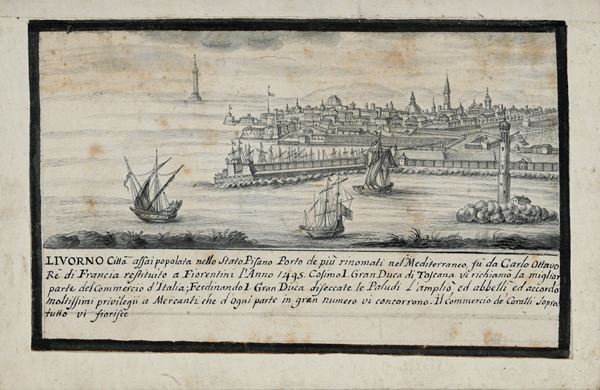 LIVORNO Città assai popolata nello Stato Pisano Porto de più rinomati nel Mediterraneo, fù da Carlo Ottavo
Rè di Francia restituito a Fiorentini l'Anno 1495. Cosimo I. Gran Duca di Toscana vi richiamò la miglior
parte del Commercio d'Italia; Ferdinando I. Gran Duca diseccate le Paludi L'ampliò ed abbellì ed accordò
moltissimi privilegii a Mercanti, che d'ogni parte in gran numero vi concorrono. Il commercio de Coralli sopra
tutto vi fiorisce